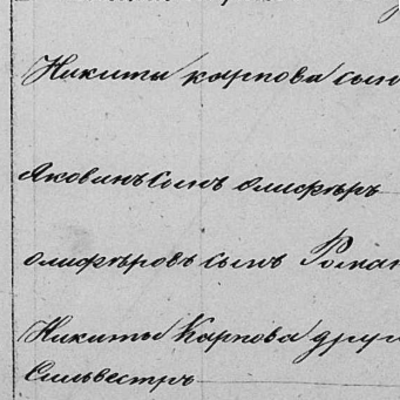 Никиты Карпова сын
Яковинъ сынъ Олиферъ
Олиферовъ сынъ Роман
Никиты Карпова друг
Сильвестръ